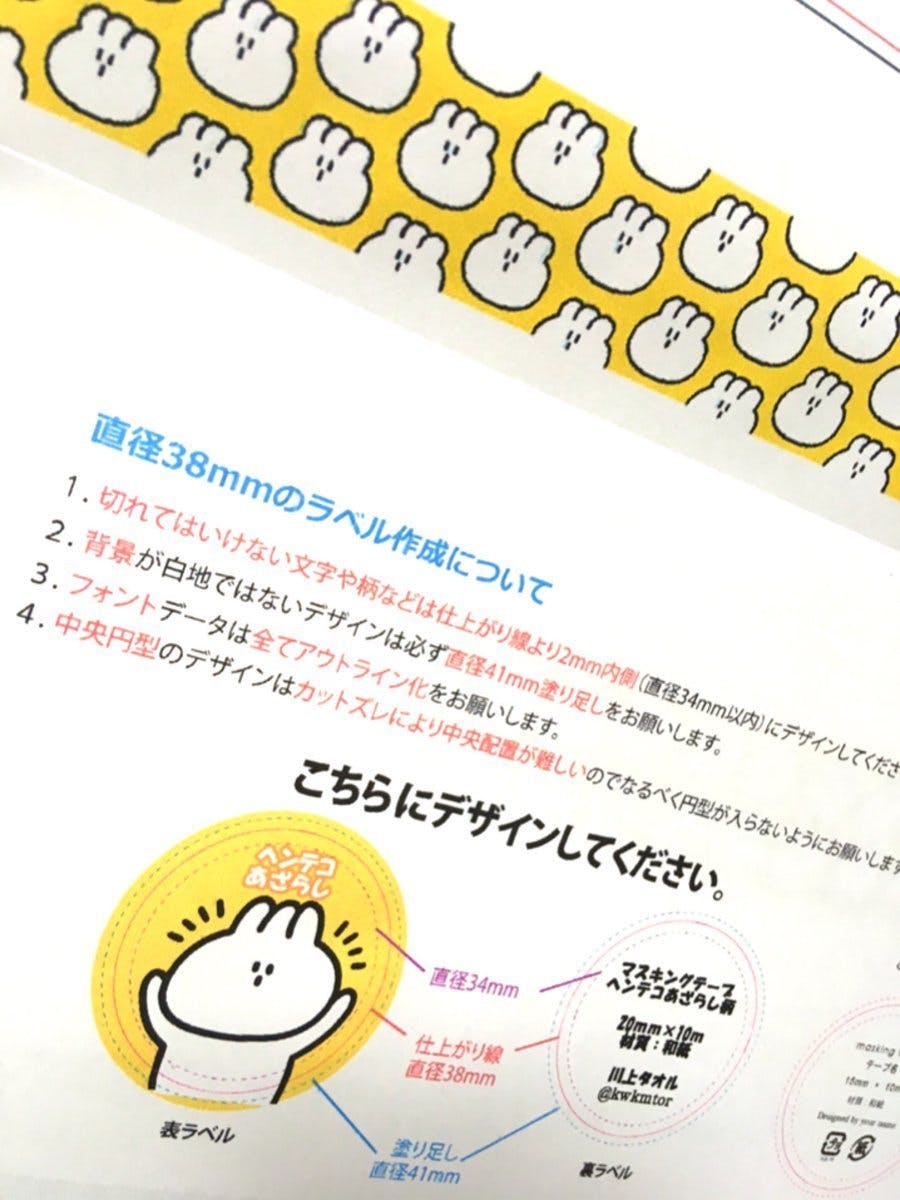 直径38mmのラベル作成について
1. 切れてはいけない文字や柄などは仕上がり線より2mm内側(直径34mm以内)にデザインしてくださ
2. 背景が白地ではないデザインは必ず直径41mm塗り足しをお願いします。
3. フォントデータは全てアウトライン化をお願いします。
4. 中央円型のデザインはカットズレにより中央配置が難しいのでなるべく円型が入らないようにお願いします
こちらにデザインしてください。
ヘンテコ
あざらし
直径34mm
仕上がり線
直径38mm
塗り足し
直径41mm
表ラベル
マスキングテープ
ヘンテコあざらし柄
20mm×10m
材質：和紙
川上タオル
@kwkmtor
裏ラベル
masking
テープ名
15mm × 10m
材質：和紙
Designed by your name
プラ
紙